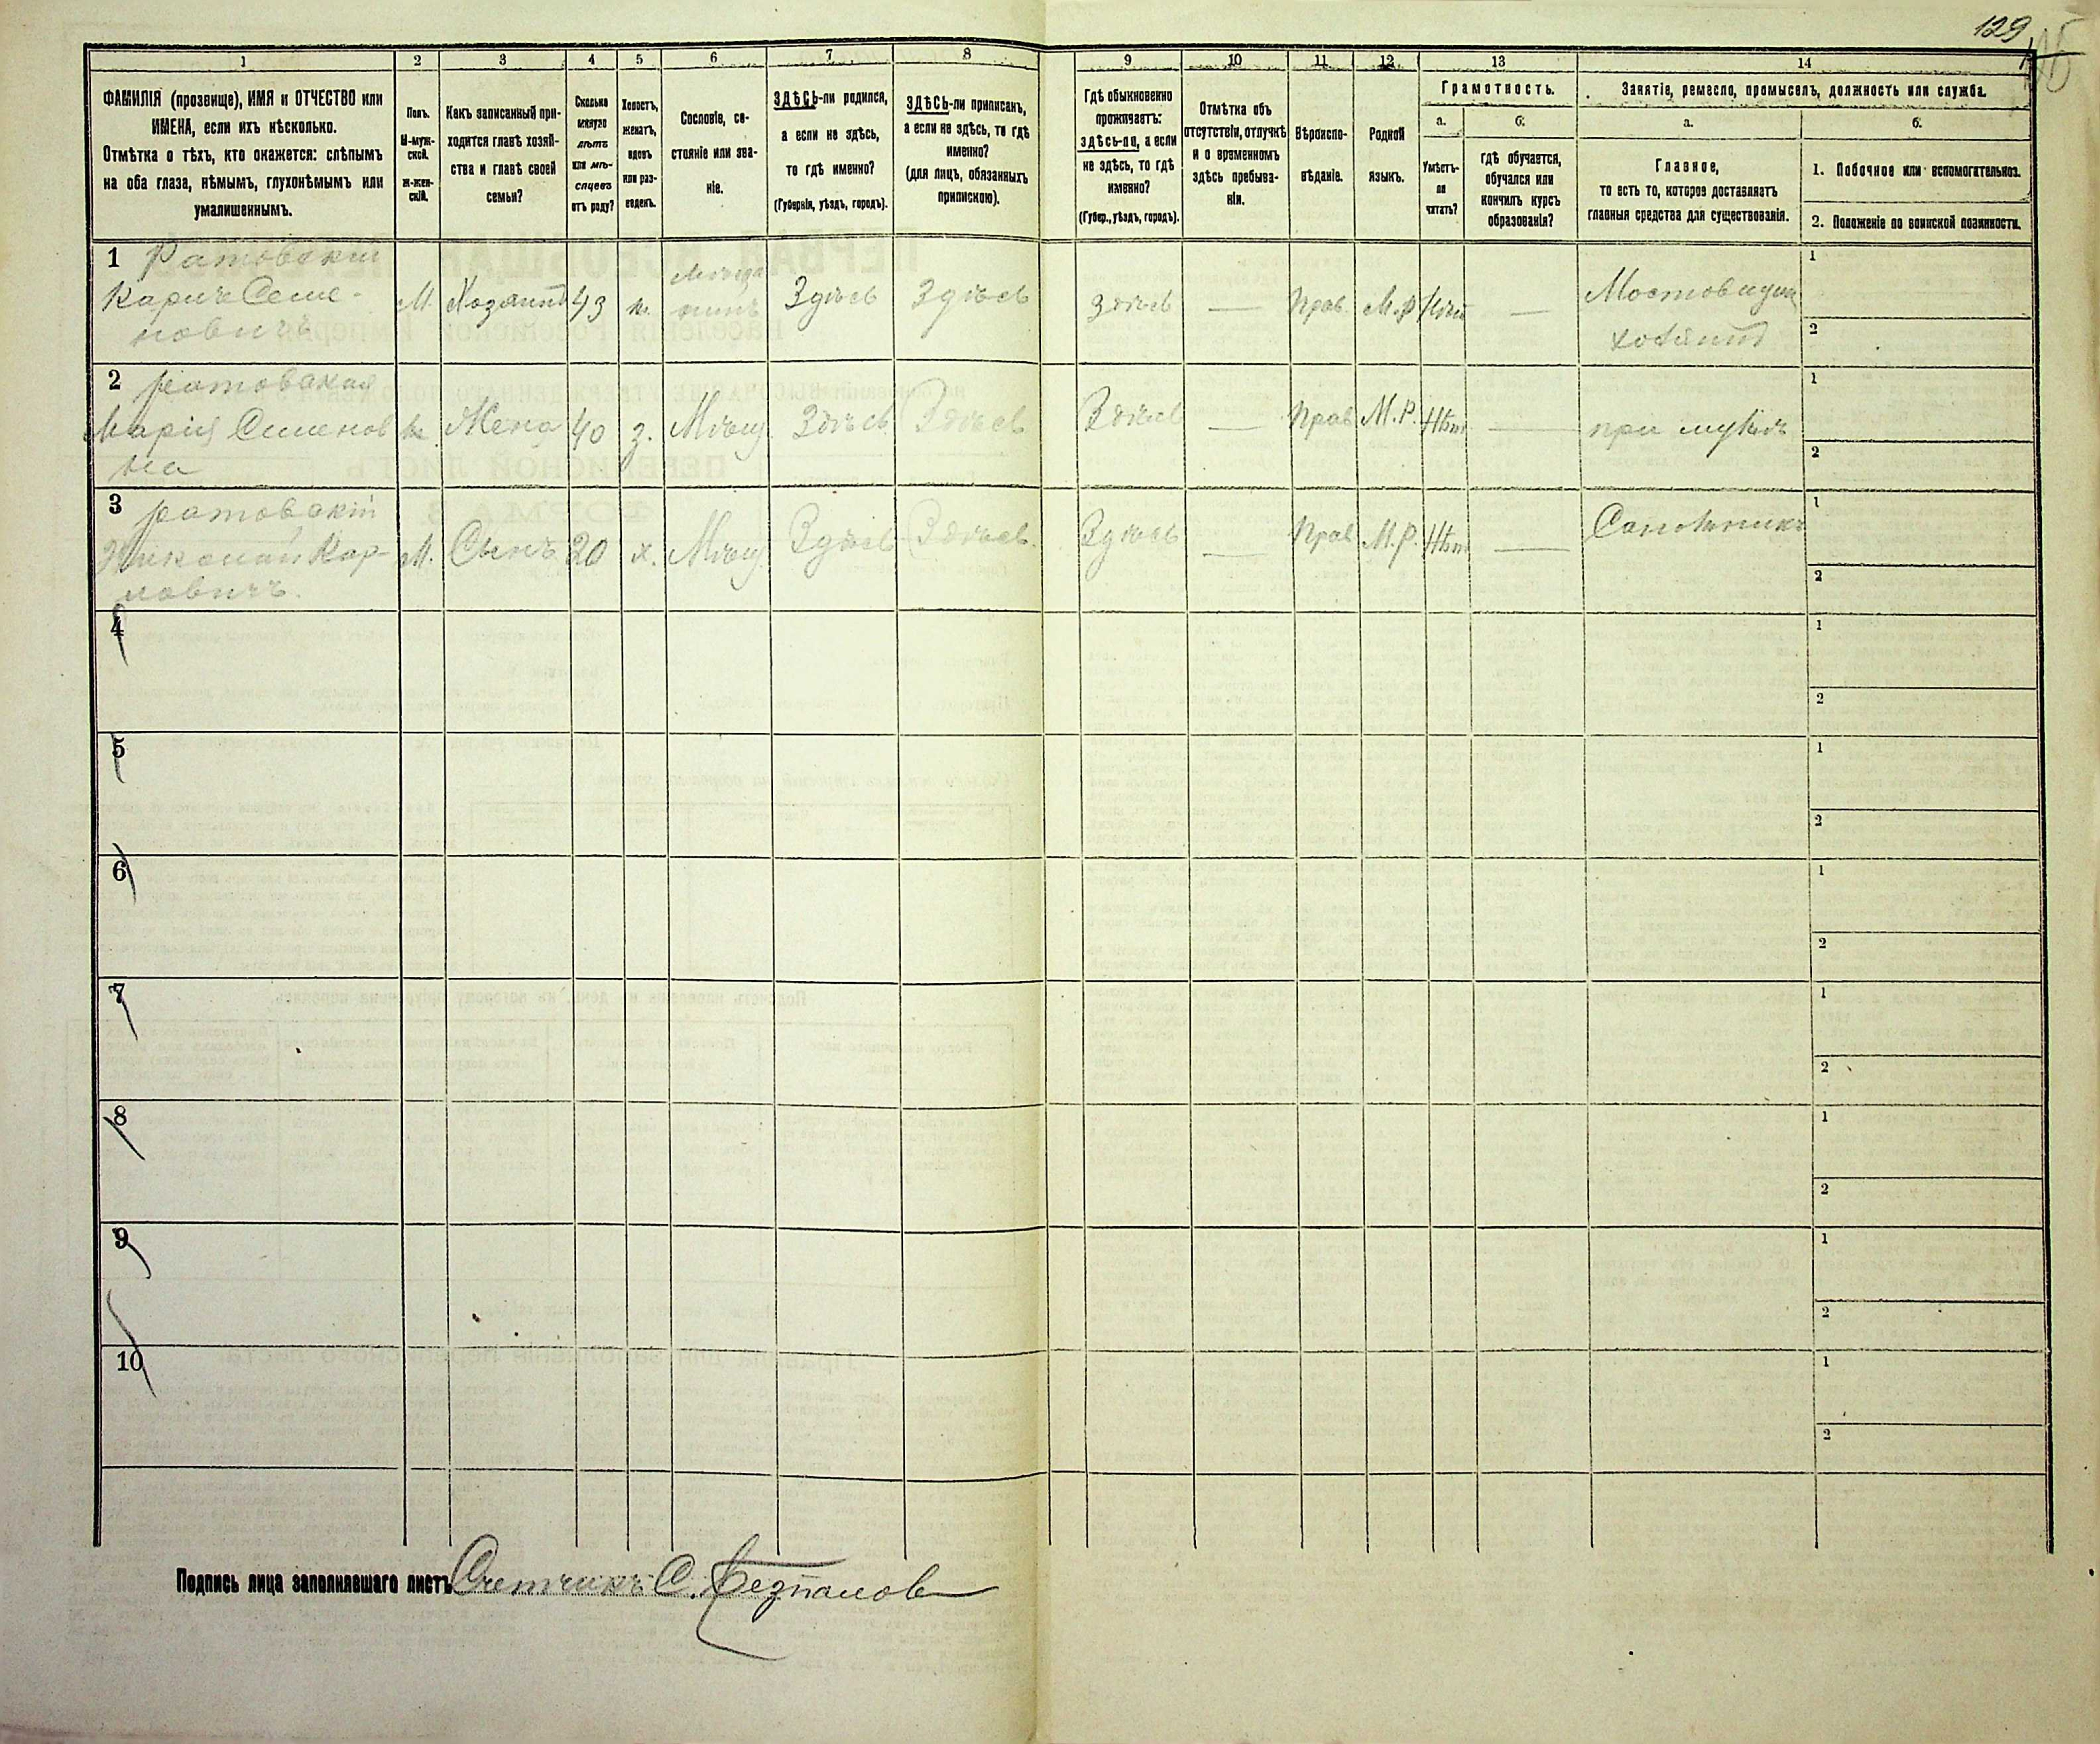 129
1 2 3 4 5 6 7 8 9 10 11 12 13 14
ФАМИЛІЯ (прозвище), ИМЯ и ОТЧЕСТВО или
ИМЕНА, если ихъ нѣсколько.
Отмѣтка о тѣхъ, кто окажется: слѣпымъ
на оба глаза, нѣмымъ, глухонѣмымъ или
умалишеннымъ.
Полъ.
М-муж-
ской.
Ж-жен-
скій.
Какъ записанный при-
ходится главѣ хозяй-
ства и главѣ своей
семьи?
Сколько
минуло
лѣтъ
или мѣ-
сяцевъ
отъ роду?
Холостъ,
женатъ,
вдовъ
или раз-
веденъ.
Сословіе, со-
стояніе или зва-
ніе.
ЗДѢСЬ-ли родился,
а если не здѣсь,
то гдѣ именно?
(Губернія, уѣздъ, городъ).
ЗДѢСЬ-ли приписанъ,
а если не здѣсь, то гдѣ
именно?
(для лицъ, обязанныхъ
припискою).
Гдѣ обыкновенно
проживаетъ:
здѣсь-ли, а если
не здѣсь, то гдѣ
именно?
(Губер., уѣздъ, городъ).
Отмѣтка объ
отсутствіи, отлучкѣ
и о временномъ
здѣсь пребыва-
ніи.
Вѣроиспо-
вѣданіе.
Родной
языкъ.
Грамотность.
а.
Умѣетъ-
ли
читать?
б.
гдѣ обучается,
обучался или
кончилъ курсъ
образованія?
Занятіе, ремесло, промыселъ, должность или служба.
а.
Главное,
то есть то, которое доставляетъ
главныя средства для существованія.
б.
1. Побочное или вспомогательное.
2. Положеніе по воинской повинности.
1 Ратовскій
Карпъ Семе-
новичъ
М. Хозяинъ 43 ж.
Мѣща
нинъ
Здѣсь Здѣсь Здѣсь — Прав. М.Р. Нѣтъ —
хозяинъ
1
2
2 Ратовская
Марія Семенов
на
Жена 40 з. Мѣщ. Здѣсь Здѣсь Здѣсь — Прав М.Р. Нѣт — при мужѣ
1
2
3 Ратовскій
Николай Кар-
повичъ.
М. Сынъ 20 х. Мѣщ. Здѣсь Здѣсь. Здѣсь — Прав М.Р. Нѣт — Сапожникъ
1
2
4
1
2
5
1
2
6
1
2
7
1
2
8
1
2
9
1
2
10
1
2
Подпись лица заполнявшаго листъ Счетчикъ С.